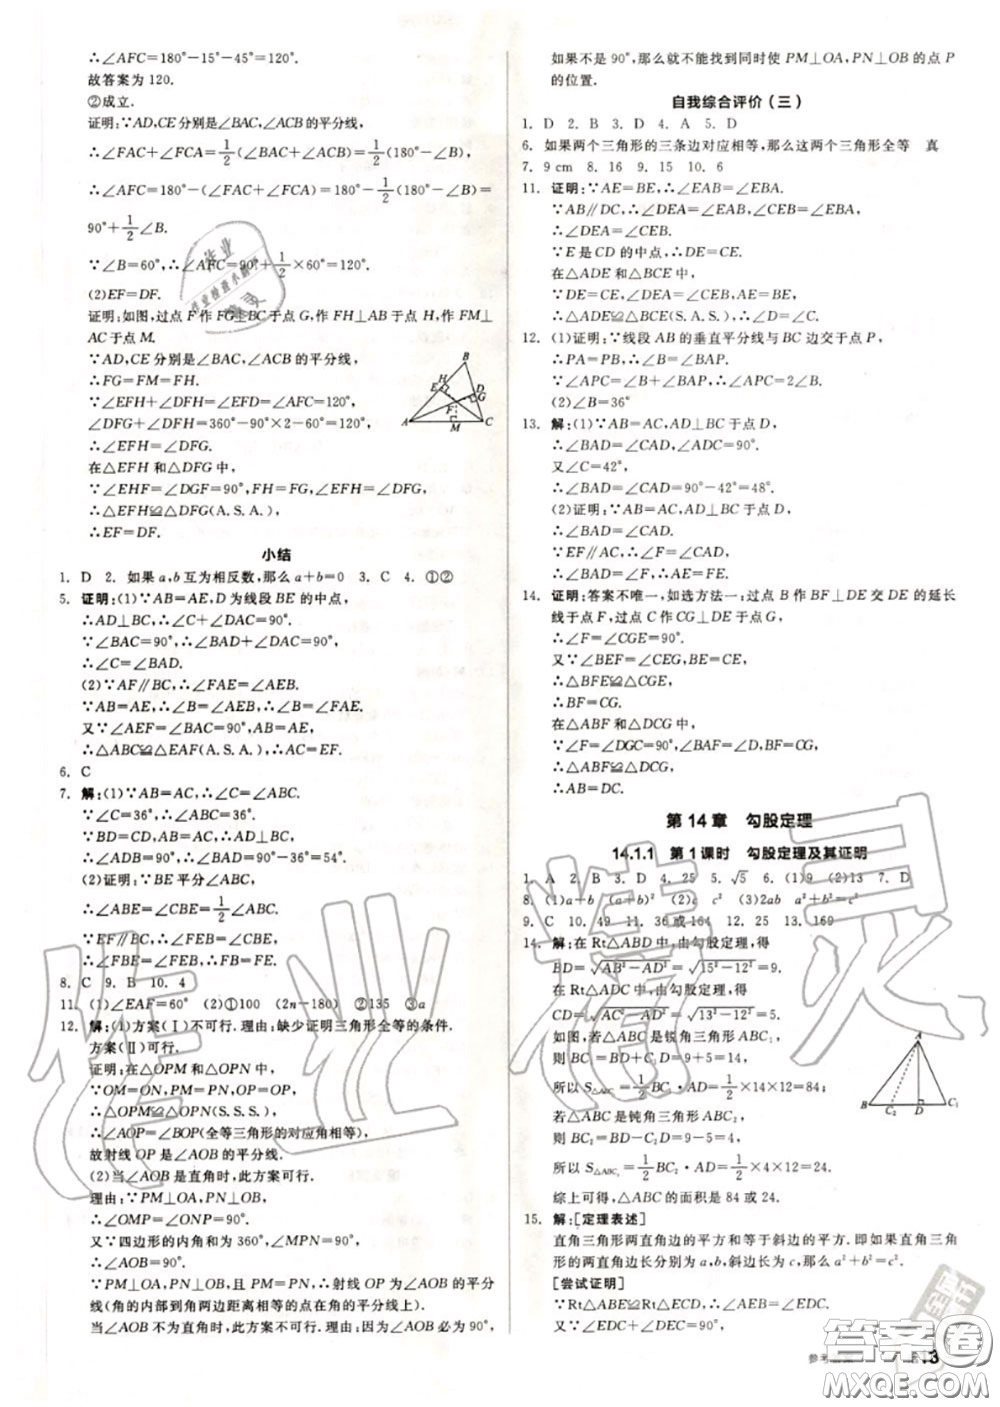 ∴∠AFC=180°-15°-45°=120°.
故答案为120.
②成立.
证明:∵AD,CE分别是∠BAC,∠ACB的平分线,
∴∠FAC+∠FCA=1/2(∠BAC+∠ACB)=1/2(180°-∠B),
∴∠AFC=180°-(∠FAC+∠FCA)=180°-1/2(180°-∠B)=
90°+1/2∠B.
∵∠B=60°,∴∠AFC=90°+1/2×60°=120°.
(2)EF=DF.
证明:如图,过点F作FG⊥BC于点G,作FH⊥AB于点H,作FM⊥
AC于点M.
∵AD,CE分别是∠BAC,∠ACB的平分线,
∴FG=FM=FH.
∵∠EFH+∠DFH=∠EFD=∠AFC=120°,
∠DFG+∠DFH=360°-90°×2-60°=120°,
∴∠EFH=∠DFG.
在△EFH和△DFG中,
∵∠EHF=∠DGF=90°,FH=FG,∠EFH=∠DFG,
∴△EFH≌△DFG(A.S.A.),
∴EF=DF.
B
H
E
D
G
F
A
M
C
小结
1. D 2. 如果a,b互为相反数,那么a+b=0 3. C 4. ①②
5. 证明:(1)∵AB=AE,D为线段BE的中点,
∴AD⊥BC,∴∠C+∠DAC=90°.
∵∠BAC=90°,∴∠BAD+∠DAC=90°,
∴∠C=∠BAD.
(2)∵AF∥BC,∴∠FAE=∠AEB.
∵AB=AE,∴∠B=∠AEB,∴∠B=∠FAE.
又∵∠AEF=∠BAC=90°,AB=AE,
∴△ABC≌△EAF(A.S.A.),∴AC=EF.
6. C
7. 解:(1)∵AB=AC,∴∠C=∠ABC.
∵∠C=36°,∴∠ABC=36°.
∵BD=CD,AB=AC,∴AD⊥BC,
∴∠ADB=90°,∴∠BAD=90°-36°=54°.
(2)证明:∵BE平分∠ABC,
∴∠ABE=∠CBE=1/2∠ABC.
∵EF∥BC,∴∠FEB=∠CBE,
∴∠FBE=∠FEB,∴FB=FE.
8. C 9. B 10. 4
11. (1)∠EAF=60° (2)①100 (2n-180) ②135 ③a
12. 解:(1)方案(Ⅰ)不可行.理由:缺少证明三角形全等的条件.
方案(Ⅱ)可行.
证明:在△OPM和△OPN中,
∵OM=ON,PM=PN,OP=OP,
∴△OPM≌△OPN(S.S.S.),
∴∠AOP=∠BOP(全等三角形的对应角相等),
故射线OP是∠AOB的平分线.
(2)当∠AOB是直角时,此方案可行.
理由:∵PM⊥OA,PN⊥OB,
∴∠OMP=∠ONP=90°.
又∵四边形的内角和为360°,∠MPN=90°,
∴∠AOB=90°.
∵PM⊥OA,PN⊥OB,且PM=PN,∴射线OP是∠AOB的平分
线(角的内部到角两边距离相等的点在角的平分线上).
当∠AOB不为直角时,此方案不可行.理由:因为∠AOB必为90°,
如果不是90°,那么就不能找到同时使PM⊥OA,PN⊥OB的点P
的位置.
自我综合评价(三)
1. D 2. B 3. D 4. A 5. D
6. 如果两个三角形的三条边对应相等,那么这两个三角形全等 真
7. 9 cm 8. 16 9. 15 10. 6
11. 证明:∵AE=BE,∴∠EAB=∠EBA.
∵AB∥DC,∴∠DEA=∠EAB,∠CEB=∠EBA,
∴∠DEA=∠CEB.
∵E是CD的中点,∴DE=CE.
在△ADE和△BCE中,
∵DE=CE,∠DEA=∠CEB,AE=BE,
∴△ADE≌△BCE(S.A.S.),∴∠D=∠C.
12. (1)证明:∵线段AB的垂直平分线与BC边交于点P,
∴PA=PB,∴∠B=∠BAP.
∵∠APC=∠B+∠BAP,∴∠APC=2∠B.
(2)∠B=36°
13. 解:(1)∵AB=AC,AD⊥BC于点D,
∴∠BAD=∠CAD,∠ADC=90°.
又∵∠C=42°,
∴∠BAD=∠CAD=90°-42°=48°.
(2)证明:∵AB=AC,AD⊥BC于点D,
∴∠BAD=∠CAD.
∵EF∥AC,∴∠F=∠CAD,
∴∠BAD=∠F,∴AE=FE.
14. 证明:答案不唯一,如选方法一:过点B作BF⊥DE交DE的延长
线于点F,过点C作CG⊥DE于点G,
∴∠F=∠CGE=90°.
又∵∠BEF=∠CEG,BE=CE,
∴△BFE≌△CGE,
∴BF=CG.
在△ABF和△DCG中,
∵∠F=∠DGC=90°,∠BAF=∠D,BF=CG,
∴△ABF≌△DCG,
∴AB=DC.
第14章 勾股定理
14.1.1 第1课时 勾股定理及其证明
1. A 2. B 3. D 4. 25 5. √5 6. (1)9 (2)13 7. D
8. (1)a+b (a+b)² (2)c c² (3)2ab a²+b²=c²
9. C 10. 49 11. 36或164 12. 25 13. 169
14. 解:在Rt△ABD中,由勾股定理,得
BD=√(AB²-AD²)=√(15²-12²)=9.
在Rt△ADC中,由勾股定理,得
CD=√(AC²-AD²)=√(13²-12²)=5.
如图,若△ABC是锐角三角形ABC₁,
则BC₁=BD+DC₁=9+5=14,
所以S△ABC₁=1/2BC₁·AD=1/2×14×12=84;
若△ABC是钝角三角形ABC₂,
则BC₂=BD-C₂D=9-5=4,
所以S△ABC₂=1/2BC₂·AD=1/2×4×12=24.
综上可得,△ABC的面积是84或24.
A
B
C₂
D
C₁
15. 解:[定理表述]
直角三角形两直角边的平方和等于斜边的平方.即如果直角三角
形的两直角边长分别为a,b,斜边长为c,那么a²+b²=c².
[尝试证明]
∵Rt△ABE≌Rt△ECD,∴∠AEB=∠EDC.
又∵∠EDC+∠DEC=90°,
作业精灵
答案圈
MXQE.COM